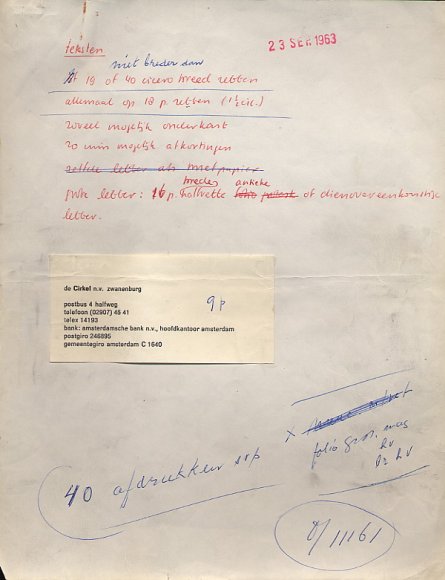 teksten
23 SEP. 1963
niet breder dan
19 of 40 cicero breed zetten
allemaal op 18 p. zetten (1½ cic.)
zoveel mogelijk onderkast
zo min mogelijk afkortingen
zelfde letter als briefpapier
brede antieke
grote letter: 16 p. halfvette of dienovereenkomstige
letter.
de Cirkel n.v. zwanenburg
9 p
postbus 4 halfweg
telefoon (02907) 45 41
telex 14193
bank: amsterdamsche bank n.v., hoofdkantoor amsterdam
postgiro 246895
gemeentegiro amsterdam C 1640
x
folio
40 afdrukken svp
0/11161